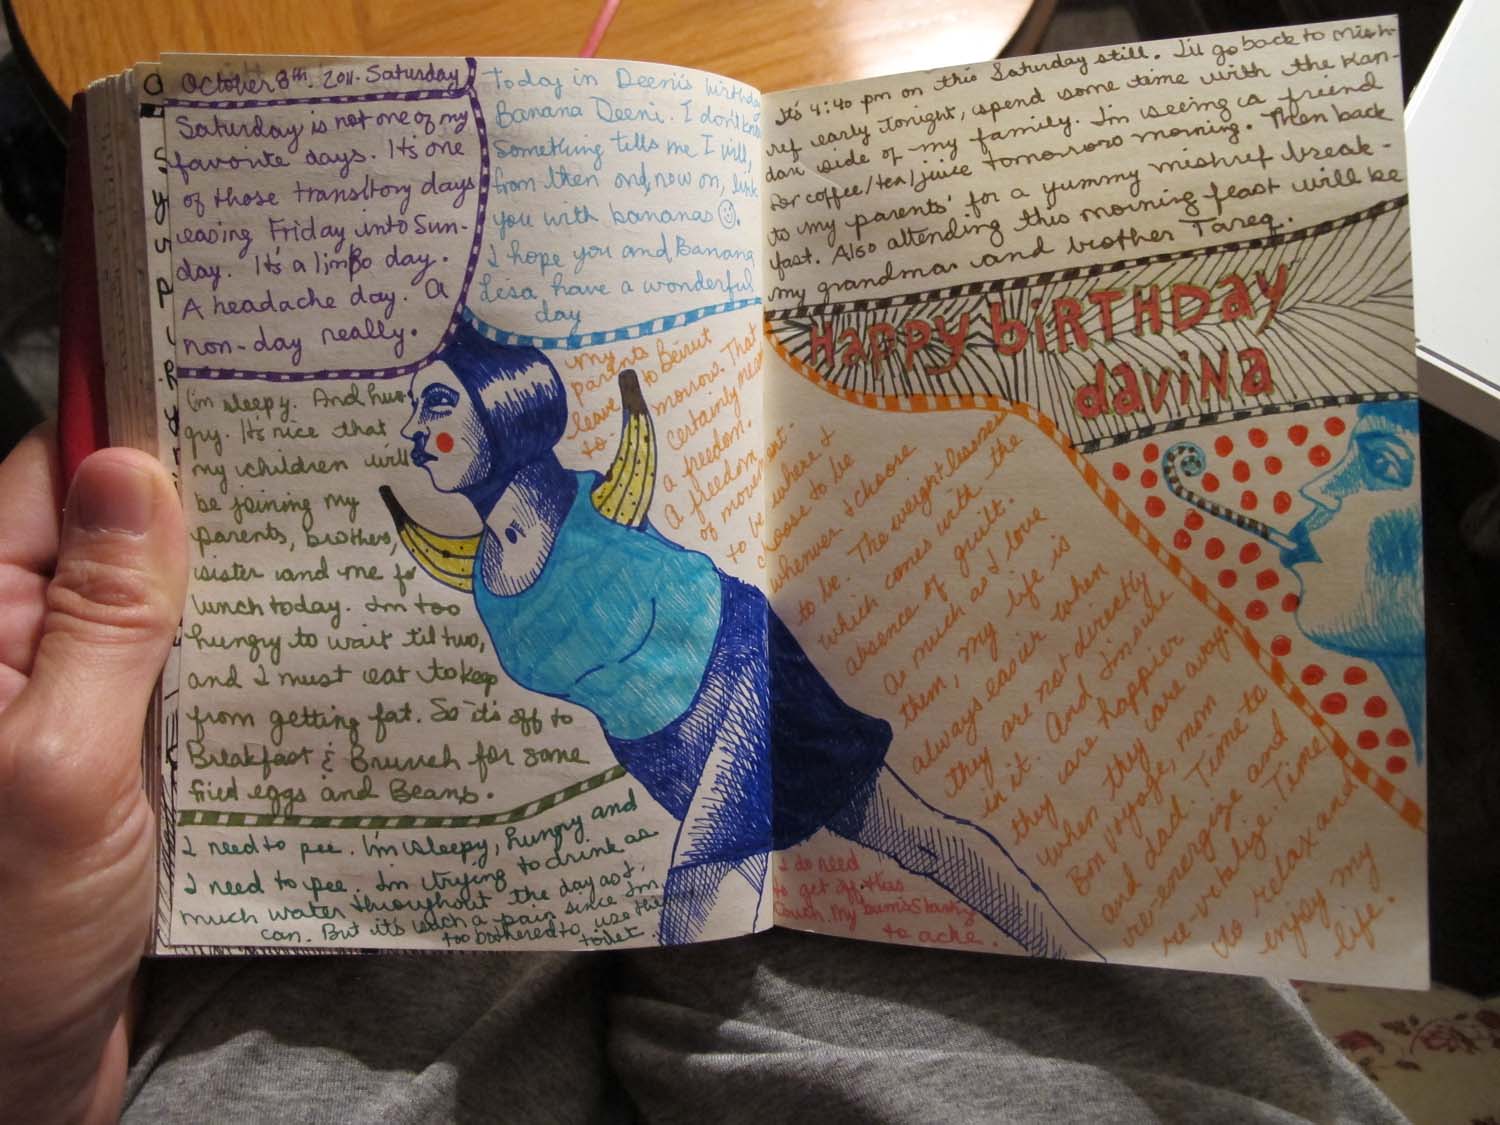 October 8th. 2011. Saturday
Saturday is not one of my
favorite days. It's one
of those transitory days
easing Friday into Sun-
day. It's a limbo day.
A headache day. A
non-day really.
Today in Deeni's birthday
Banana Deeni. I don't know
Something tells me I will,
from then on, now on, link
you with bananas ☺.
I hope you and Banana
Lisa have a wonderful
day
I'm sleepy. And hun-
gry. It's nice that
my children will
be joining my
parents, brothers,
sister and me for
lunch today. I'm too
hungry to wait til two,
and I must eat to keep
from getting fat. So it's off to
Breakfast & Brunch for some
fried eggs and Beans.
I need to pee. I'm sleepy, hungry and
I need to pee. I'm trying to drink as
much water throughout the day as I
can. But it's such a pain since I'm
too bothered to use the
toilet.
my
parents
leave to Beirut
to-morrow. That
certainly means
a freedom.
A freedom
of movement.
to be where I
choose to be
whenever I choose
to be. The weightlessness
which comes with the
absence of guilt.
As much as I love
them, my life is
always easier when
they are not directly
in it. And I'm sure
they are happier
when they are away.
Bon voyage, mom
and dad. Time to
re-energize and
re-vitalize. Time
to relax and
enjoy my
life.
I do need
to get off this
couch. My bum's starting
to ache.
It's 4:40 pm on this Saturday still. I'll go back to Mish-
ref early tonight, spend some time with the Kan-
dari side of my family. I'm seeing a friend
for coffee/tea/juice tomorrow morning. Then back
to my parents' for a yummy mishref break-
fast. Also attending this morning feast will be
my grandma and brother Tareq.
Happy BiRTHDay
daviNa